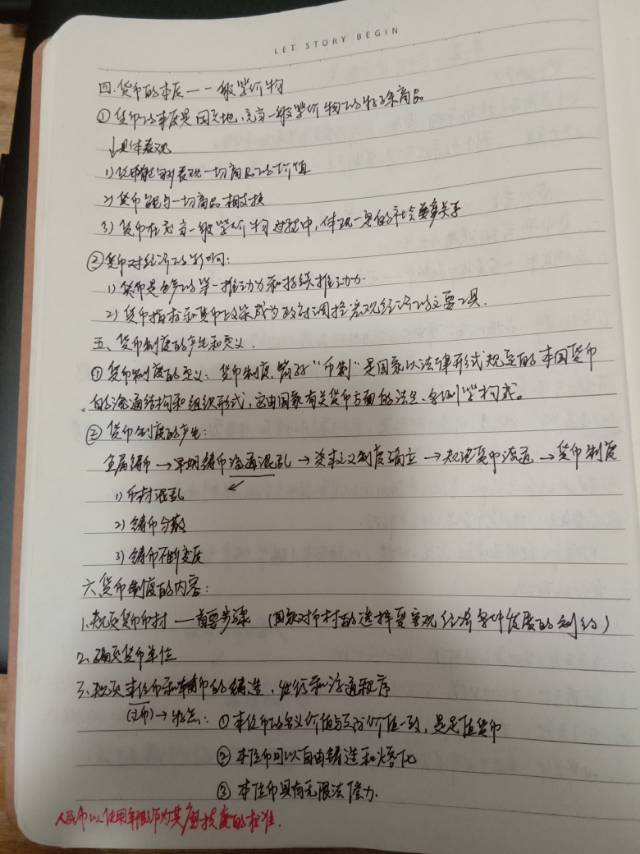 LET STORY BEGIN
四.货币的本质——一般等价物
①货币的本质是固定地充当一般等价物的特殊商品
↓具体表现
1)货币能够表现一切商品的价值
2)货币能与一切商品相交换
3)货币在充当一般等价物过程中,体现一定的社会生产关系
②货币对经济的影响:
1)货币是生产的第一推动力和持续推动力.
2)货币指标和货币政策成为政府调控宏观经济的主要工具.
五、货币制度的产生和定义.
①货币制度的定义:货币制度,简称"币制"是国家以法律形式规定的本国货币
的流通结构和组织形式,它由国家有关货币方面的法令、条例等构成.
②货币制度的产生:
金属铸币→早期铸币流通混乱→资本主义制度确立→规范货币流通→货币制度
1)币材混乱
2)铸币分散
3)铸币不断变质
六货币制度的内容:
1.规定货币币材——首要步骤 (国家对币材的选择要受客观经济条件发展的制约)
2.确定货币单位
三.规定本位币和辅币的铸造,发行和流通程序
(主币)→特点:①本位币的名义价值与实际价值一致,是足值货币
②本位币可以自由铸造和熔化
③本位币具有无限法偿力.
人民币以使用年限
的标准.